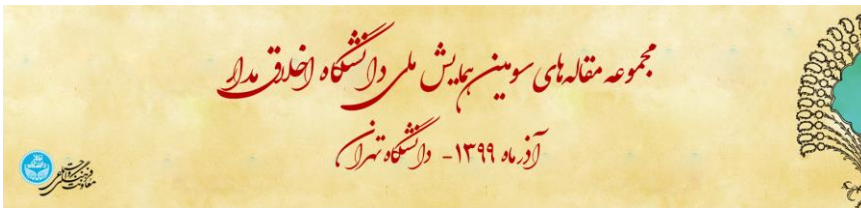 مجموعه مقاله‌های سومین همایش ملی دانشگاه اخلاق مدار
آذر ماه ۱۳۹۹- دانشگاه تهران
معاونت فرهنگی